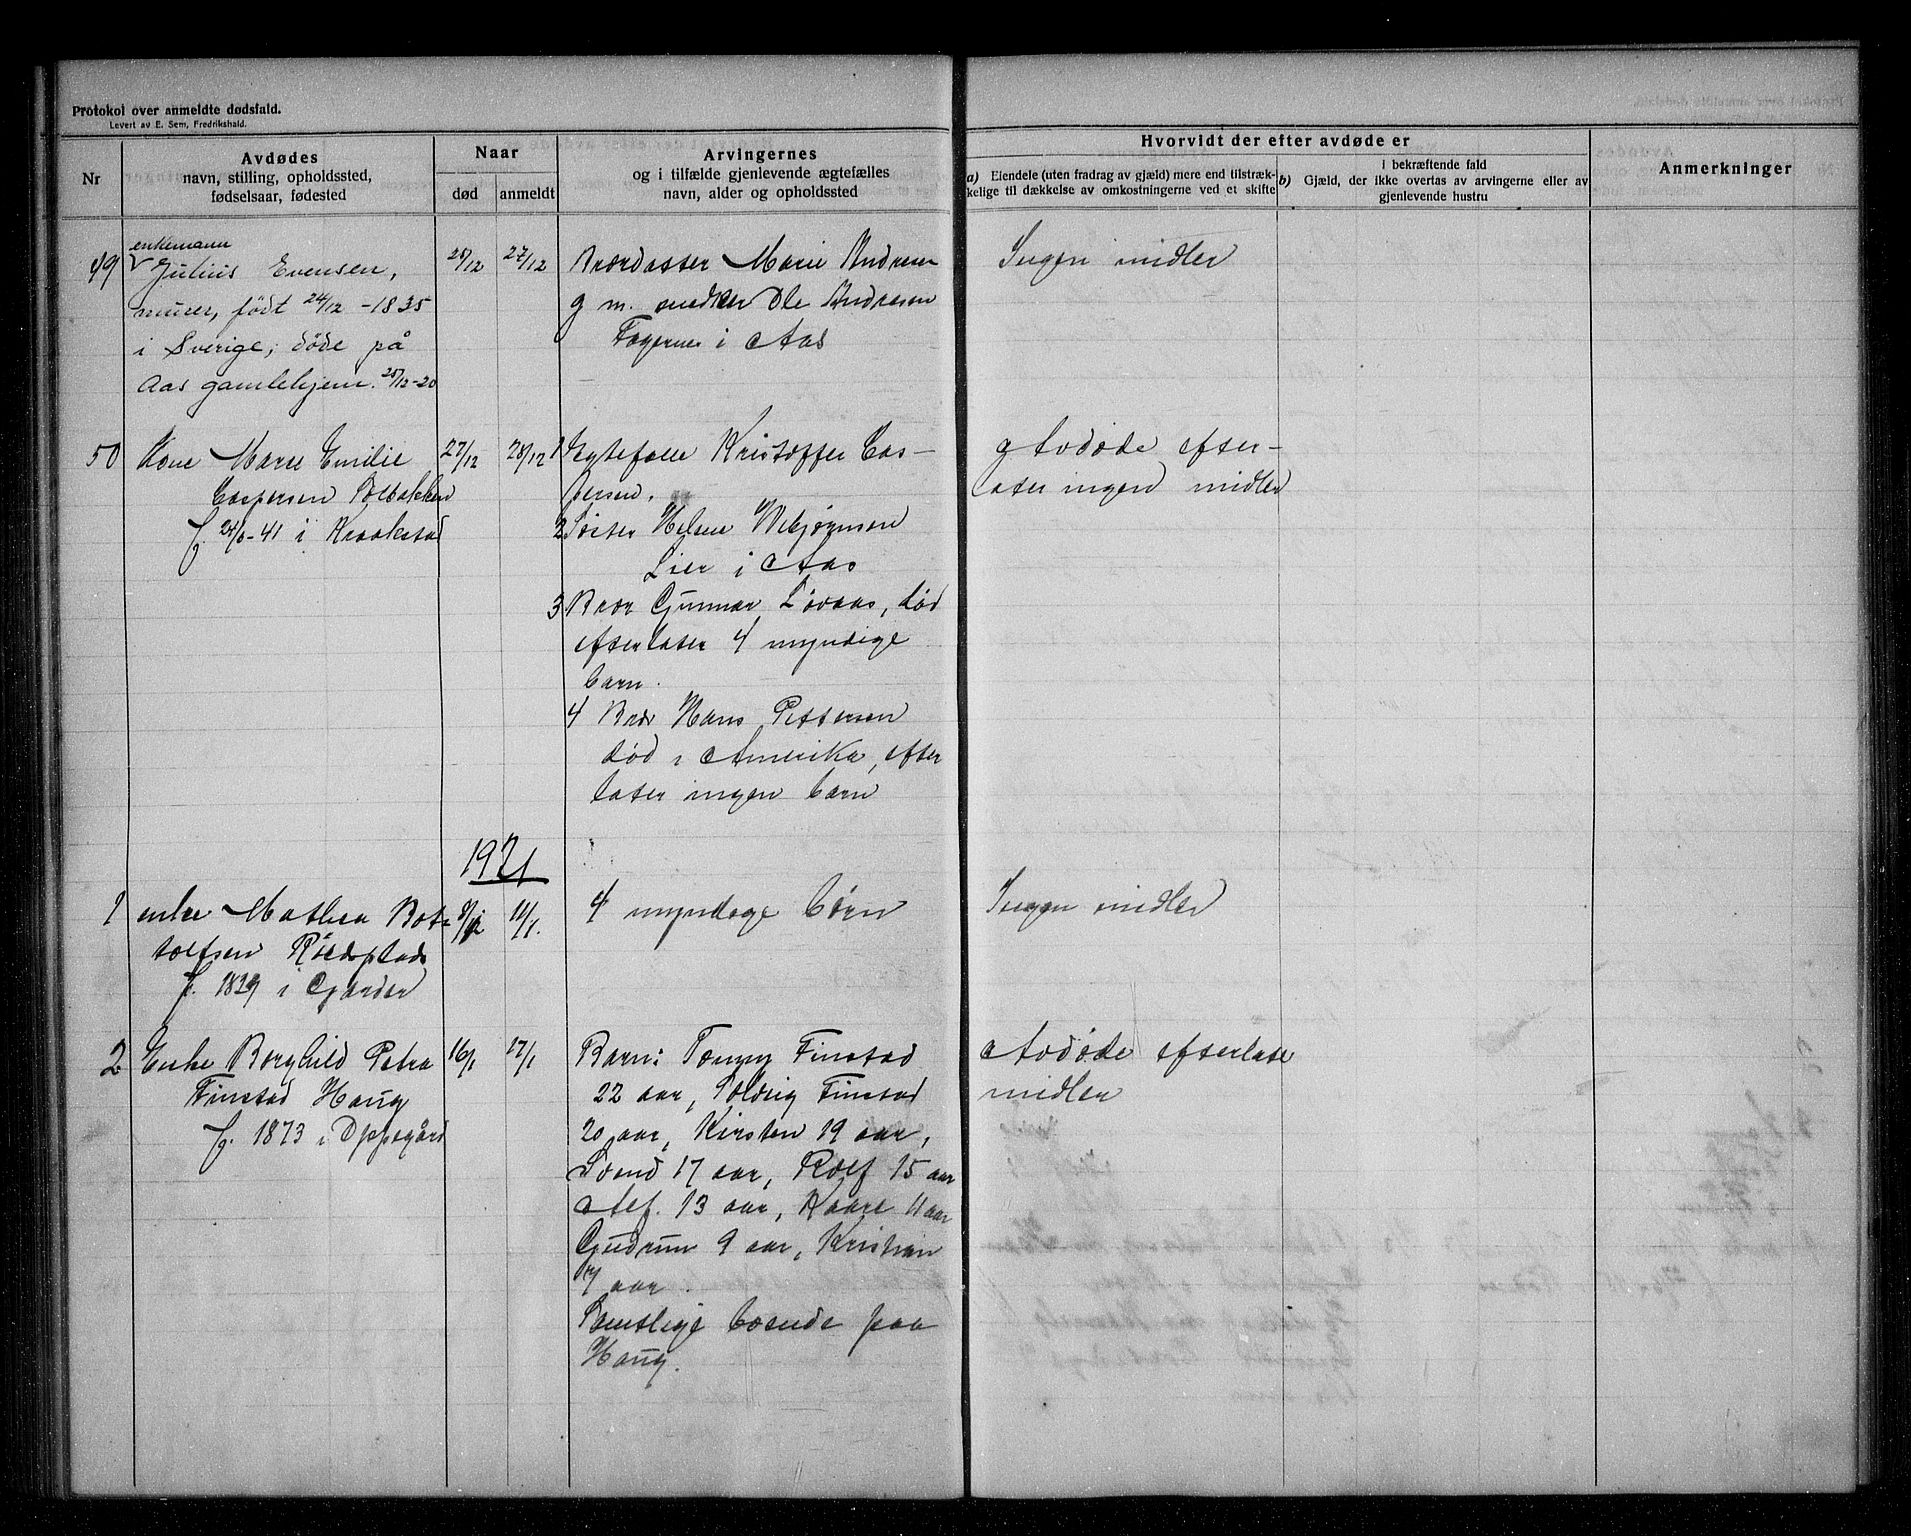 Protokol over anmeldte dødsfald.
Levert av E. Sem, Fredrikshald.
Nr
Avdødes
navn, stilling, opholdssted,
fødselsaar, fødested
Naar
død
anmeldt
Arvingernes
og i tilfælde gjenlevende ægtefælles
navn, alder og opholdssted
Hvorvidt der efter avdøde er
a) Eiendele (uten fradrag av gjæld) mere end tilstræk-
kelige til dækkelse av omkostningerne ved et skifte
i bekræftende fald
b) Gjæld, der ikke overtas av arvingerne eller av
gjenlevende hustru
Anmerkninger
49
enkemann
Julius Evensen,
murer, født 24/12 - 1835
i Sverige; døde på
Aas gamlehjem. 25/12-20
25/12
27/12
Brordatter Marie Andresen
g m. snedker Ole Andresen
Fagernes i Aas
Ingen midler
50
Kone Marie Emilie
Caspersen Solbakken
f. 24/6-41 i Kraakstad
27/12
28/12
1 Egtefelle Kristoffer Cas-
persen.
2 Søster Helene Vebjørnsen
Lier i Aas
3 Bror Gunnar Løvaas, død
efterlater 4 myndige
barn.
4 Bror Hans Pettersen
død i Amerika, efter
later ingen barn
Avdøde efter-
later ingen midler
1921
1
enke Mathea Bot-
tolfsen Rödsplads
f. 1839 i Gjærder
11/1.
4 myndige börn
Ingen midler
2
Enke Borghild Petra
Finstad Haug
f. 1873 i Oppegård
16/1
17/1
Barn: Tonny Finstad
22 aar, Solveig Finstad
20 aar, Kirsten 19 aar,
Svend 17 aar, Rolf 15 aar
Alf. 13 aar, Kaare 11 aar
Gudrun 9 aar, Kristian
7 aar.
Samtlige boende paa
Haug.
Avdøde efterlater
midler